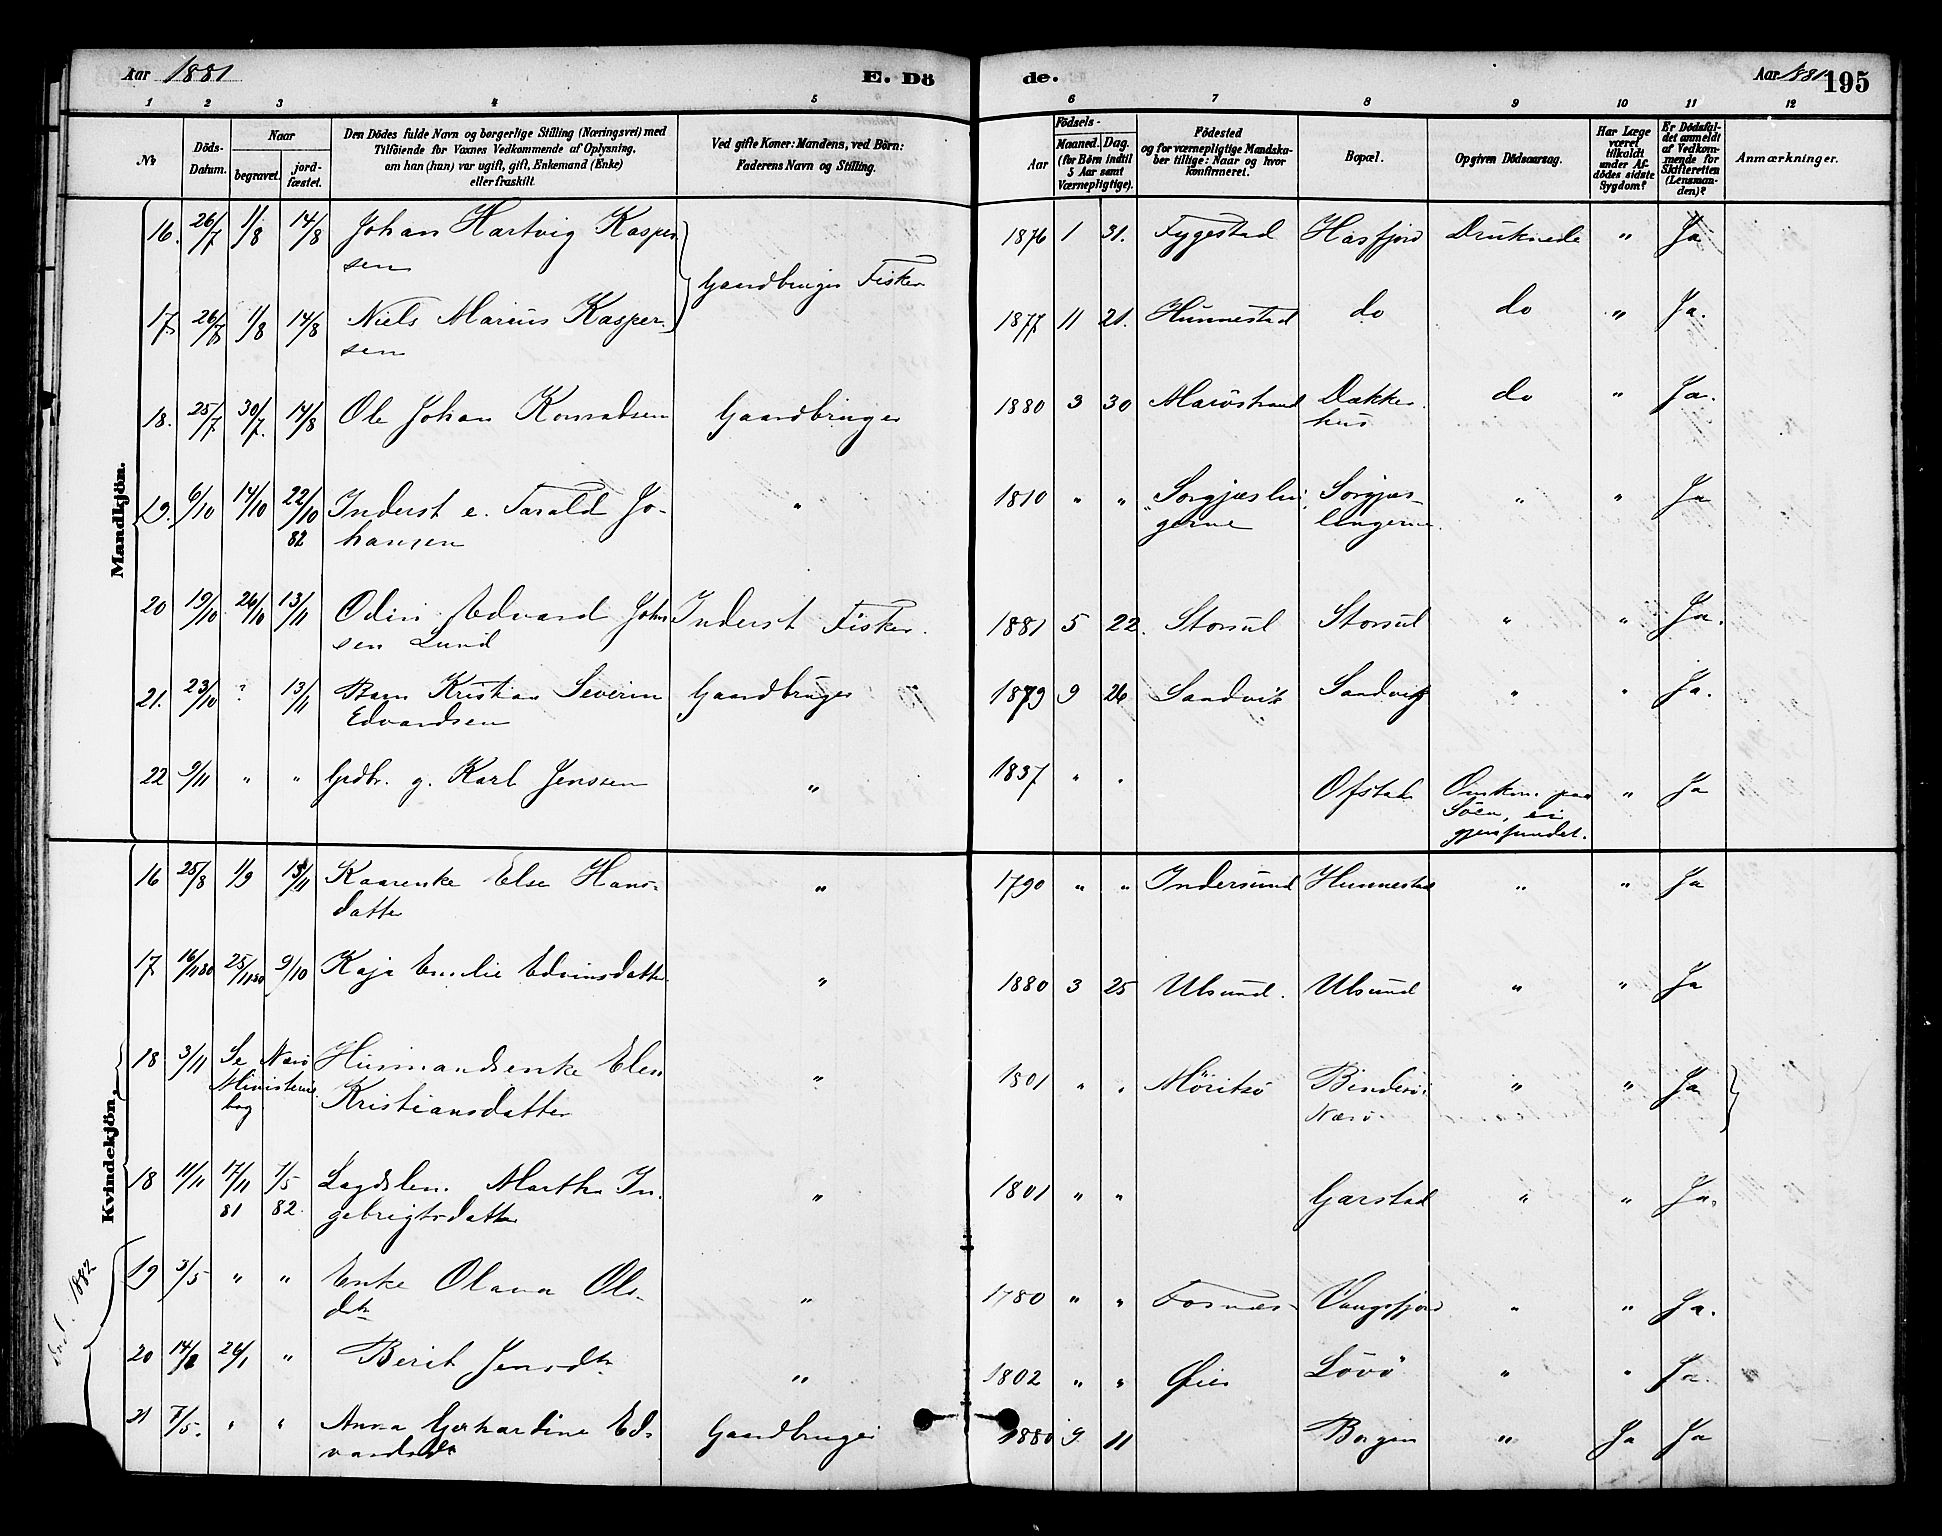 Aar 1881 E. Dö de. Aar 1881. 195
1 2 3 4 5 6 7 8 9 10 11 12
No Döds-Datum. Naar begravet. jordfæstet. Den Dödes fulde Navn og borgerlige Stilling (Næringsvei) med Tilföiende for Voxnes Vedkommende af Oplysning, om han (hun) var ugift, gift, Enkemand (Enke) eller fraskilt. Ved gifte Koner: Mandens, ved Börn: Faderens Navn og Stilling. Födsels- Aar Maaned. Dag. (for Börn indtil 5 Aar samt Værnepligtige). Födested og for værnepligtige Mandskaber tillige: Naar og hvor konfirmeret. Bopæl. Opgiven Dödsaarsag. Har Læge været tilkaldt under Afdödes sidste Sygdom? Er Dödsfaldet anmeldt af Vedkommende for Skifteretten (Lensmanden)? Anmærkninger.
Mandkjön.
16. 26/7 1/8 14/8 Johan Hartvig Kaspersen Gaardbruger Fisker 1876 1 31. Fygestad Hasfjord Druknede " Ja
17. 26/7 1/8 14/8 Niels Marius Kaspersen 1877 11 21. Hunnestad do do " Ja.
18. 25/7 30/7. 14/8 Ole Johan Konradsen Gaardbruger 1880 3 30 Maröstrand Dækkerhus do " Ja.
19. 6/10 14/10 22/10 82 Inderst e. Tarald Johansen " 1810 " " Sorgjæslingerne Sorgjæslingerne. " " Ja
20 19/10 26/10 13/11 Odin Edvard Johnsen Lund Inderst Fisker. 1881 5 22. Storsul Storsul " " Ja.
21. 23/10 ? 13/11 Barn Kristian Severin Edvardsen Gaardbruger 1879 9 26 Sandvik Sandvik " " Ja.
22 9/11 " " Grdbr. g. Karl Jenssen " 1837 " " Ofstad Omkom paa Söen, ei gjenfundet. " Ja
Kvindekjön.
16 25/8 1/9 13/11 Kaarenke Else Hansdatter " 1790 " " Indersund Hunnestad " " Ja
17 16/11 80 25/11 80 9/10 Kaja Emelie Edvinsdatter " 1880 3 25 Ulsund. Ulsund " " Ja
18 3/11 Se Nærö Ministerialbog Husmandsenke Elen Kristiansdatter " 1801 " " Möritsö Binderö Nærö " " Ja
18 11/11 17/11 81 1/5 82. Lægdslem. Martha Ingebrigtsdatter " 1801 " " Garstad " " Ja.
död. 1882
19 3/5 " " Enke Olava Olsdtr " 1780 " " Fosnæs Vangsfjord " " Ja.
20 14/2 26/1 " Berit Jensdtr " 1802 " " Öie Lövö " " Ja.
21 7/5. " " Anna Gerhardine Edvardsdtr Gaardbruger 1880 9 11 Borgen " Ja Ja